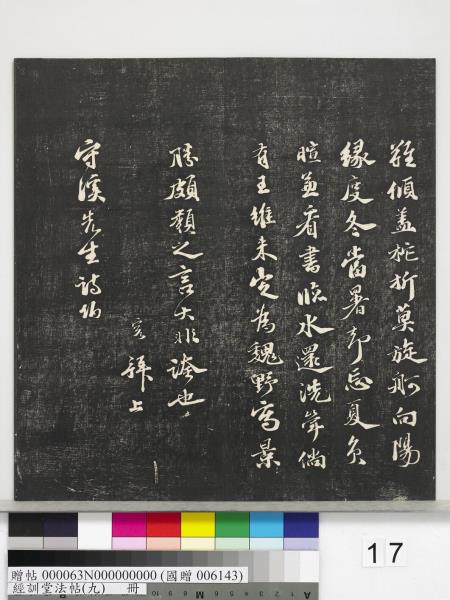 難傾蓋柁折莫旋舸向陽
緣度冬當暑却忘夏負
暄兼看書臨水還洗斝倘
有王維來定為魏野寫景
勝頗類之言大非也
拜上
守溪先生詩伯
17
贈帖 000063N000000000 (國贈 006143)
經訓堂法帖(九) 冊